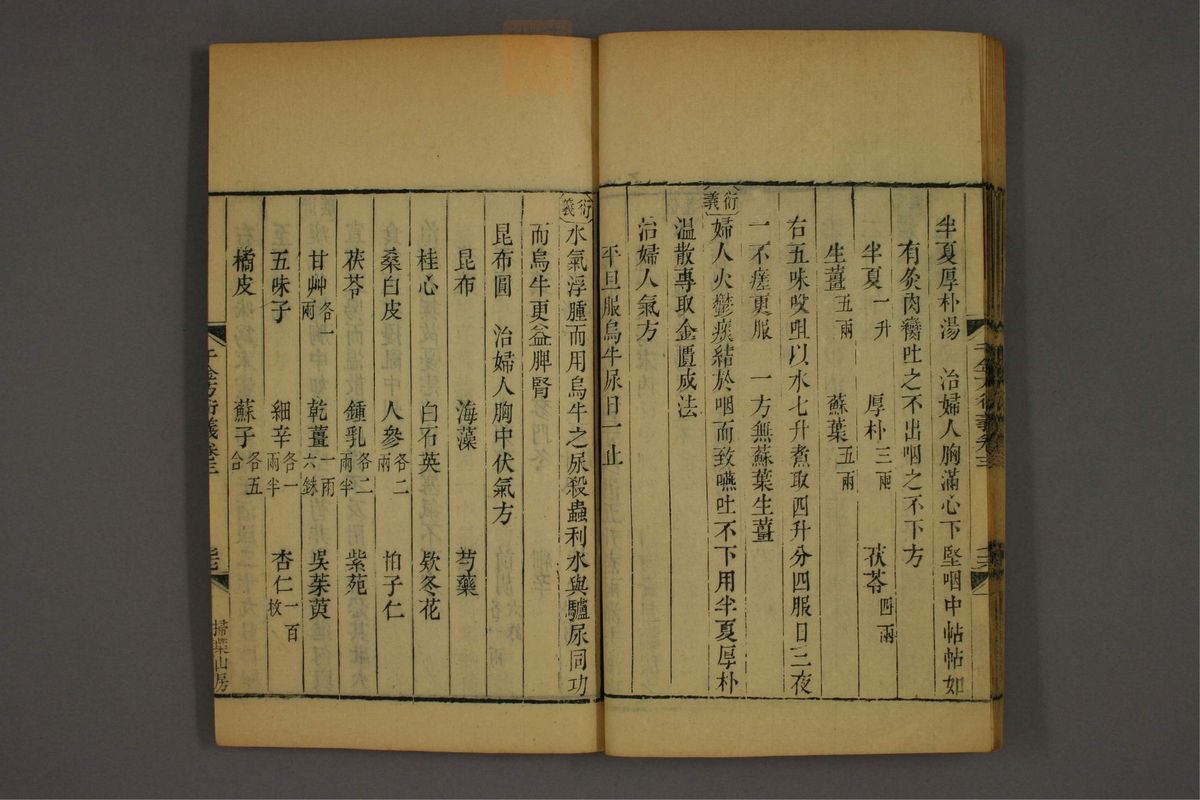 半夏厚朴湯　治婦人胸滿心下堅咽中帖帖如
有炙肉臠吐之不出咽之不下方
半夏一升　厚朴三兩　茯苓四兩
生薑五兩　蘇葉五兩
右五味㕮咀以水七升煮取四升分四服日三夜
一不瘥更服　一方無蘇葉生薑
衍義婦人火鬱痰結於咽而致嚥吐不下用半夏厚朴
溫散專取金匱成法
治婦人氣方
平旦服烏牛尿日一止
衍義水氣浮腫而用烏牛之尿殺蟲利水與驢尿同功
而烏牛更益脾腎
昆布圓　治婦人胸中伏氣方
昆布　海藻　芍藥
桂心　白石英　欵冬花
桑白皮　人參各二兩　柏子仁
茯苓　鍾乳各二兩半　紫菀
甘艸各一兩　乾薑一兩六銖　吳茱萸
五味子　細辛各一兩半　杏仁一百枚
橘皮　蘇子各五合
千金方衍義卷三
掃葉山房